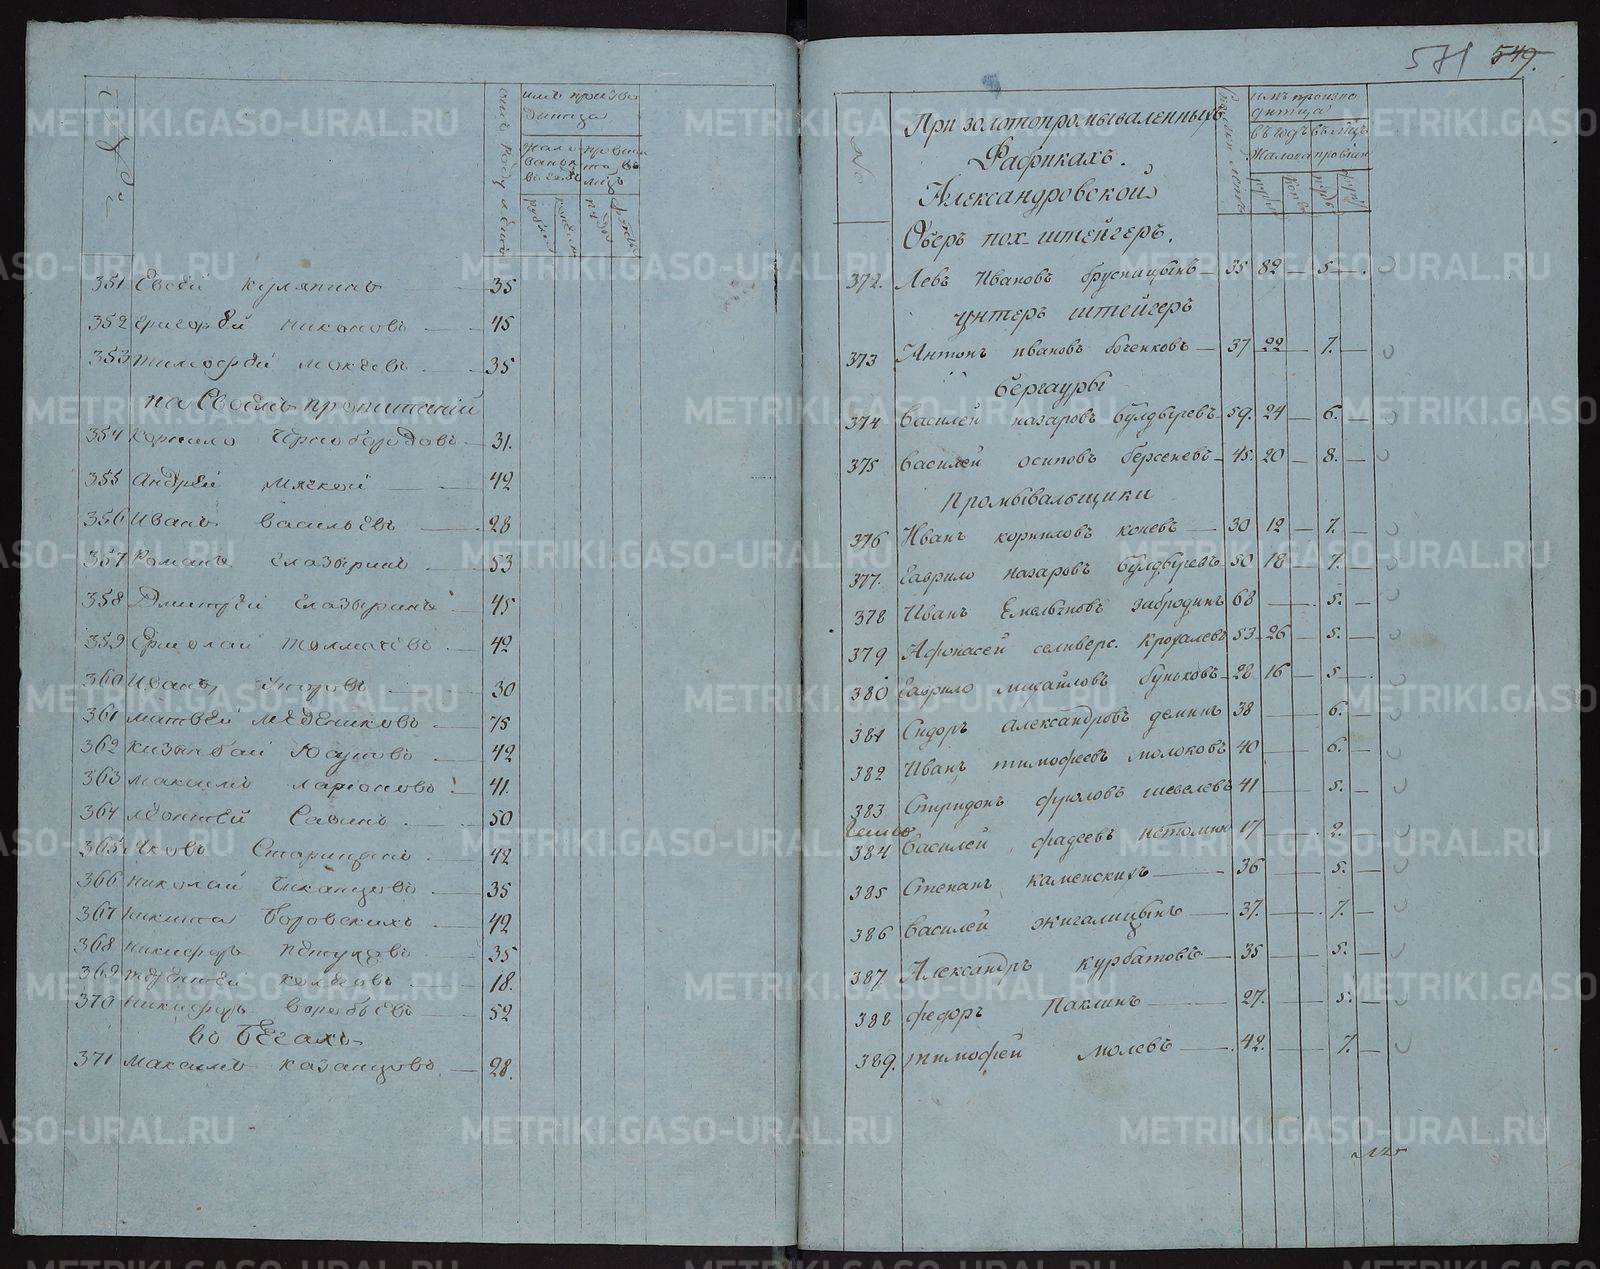 351 Евсей кулявинъ 35
352 Григорей никоновъ 45
353 тимофей мокеевъ 35
на Своемъ пропитании
354 корнило Чернобородовъ 31.
355 андрей мяхкой 42
356 Иванъ васильевъ 28
357 Романъ глазыринъ 53
358 Дмитрей глазыринъ 45
359 Ермолай толмачевъ 42
360 Иванъ 30
361 матвей меденниковъ 75
362 42
363 максимъ ларионовъ 41.
364 леонтей Савинъ 50
365 Яковъ Старицынъ 42
366 николай Чиканцовъ 35
367 никита боровскихъ 42
368 никифоръ петуховъ 35
369 терентей колеговъ 18.
370 никифоръ воробьевъ 52
въ бегахъ
371 максимъ казанцовъ 28.
571 549.
№
При золотопромываленныхъ
Фабрикахъ.
Александровской
имъ произво
дитца
въ годъ въ мцъ
жалова провиан
Оберъ пох-штейгеръ.
372. Левъ Ивановъ брусницынъ 35 82 5
унтеръ штейгеръ
373 Антонъ ивановъ боченковъ 37 22 7.
бергауры
374 василей назаровъ булдыревъ 59. 24 6.
375 василей осиповъ берсеневъ 45. 20 8.
промывальщики
376 Иванъ корниловъ коневъ 30 12 7.
377. гаврило назаровъ булдыревъ 50 18 7.
378 Иванъ Емельяновъ забродинъ 68 5.
379 Афонасей селиверс. крохалевъ 53 26 5.
380 гаврило михайловъ буньковъ 28 16 5
381 Сидоръ александровъ деминъ 38 6.
382 Иванъ тимофеевъ молоковъ 40 6.
383 Спиридонъ фроловъ шевелевъ 41 5.
384 василей фадеевъ истоминъ 17 2.
385 Степанъ каменскихъ 36 5.
386 василей жигалицынъ 37. 7.
387. Александръ курбатовъ 35 5.
388 федоръ паклинъ 27. 5.
389. тимофей молевъ 42. 7.
METRIKI.GASO-URAL.RU